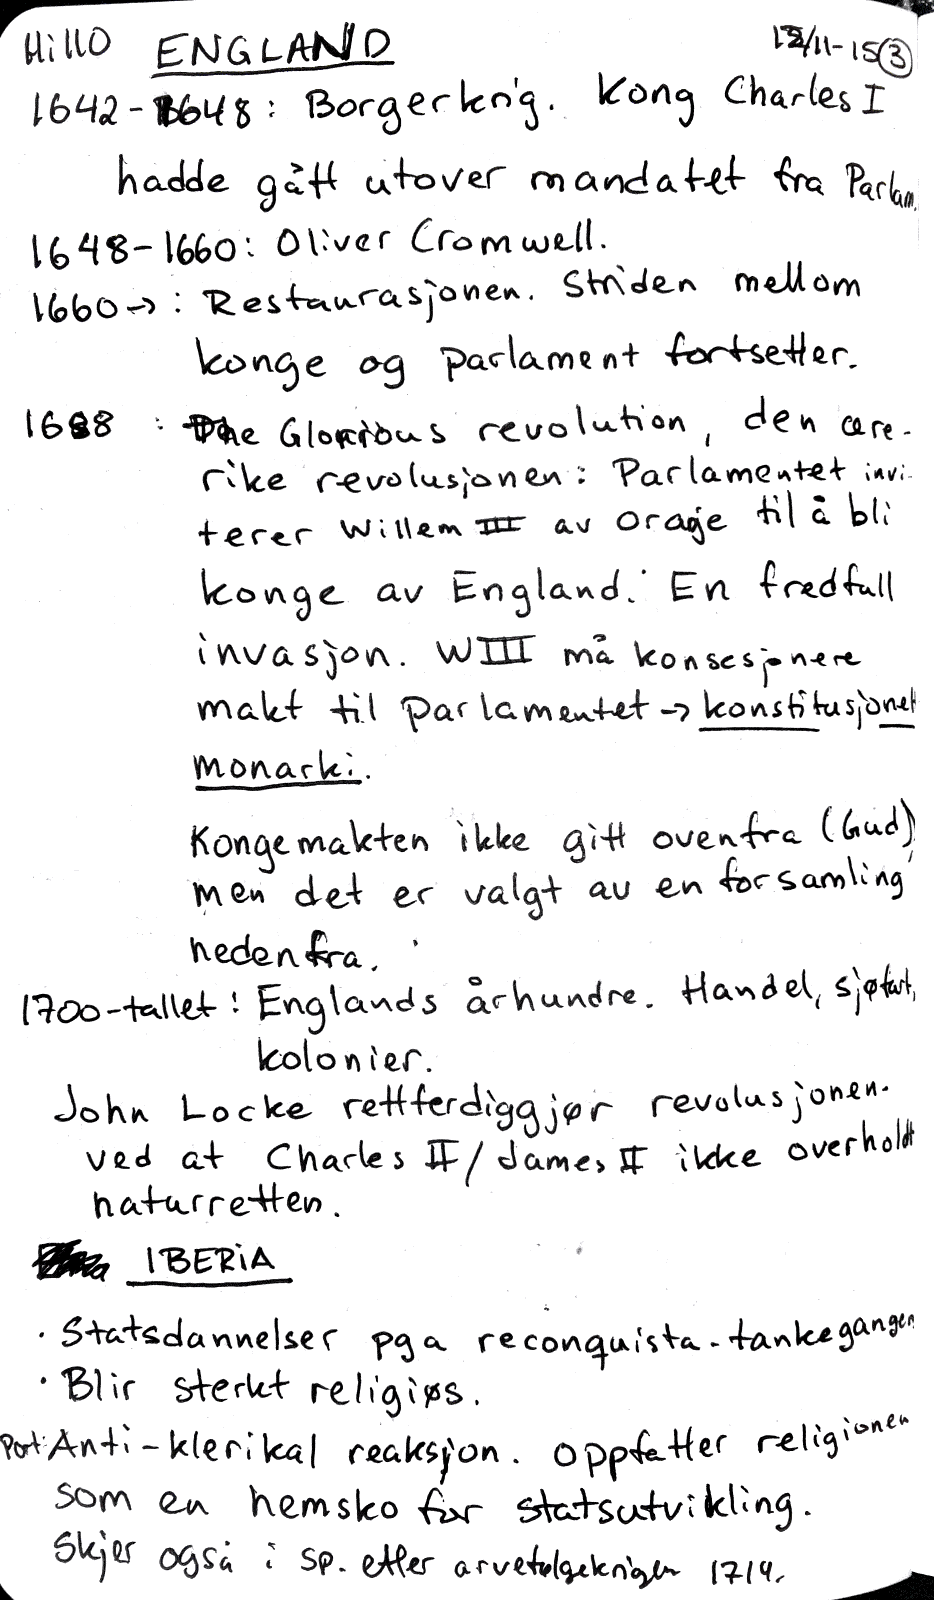 HillO ENGLAND 12/11-15 3
1642-1648: Borgerkrig. Kong Charles I
hadde gått utover mandatet fra Parlam.
1648-1660: Oliver Cromwell.
1660→: Restaurasjonen. Striden mellom
konge og parlament fortsetter.
1688 : The Glorious revolution, den ære-
rike revolusjonen: Parlamentet invi-
terer Willem III av Oraje til å bli
konge av England. En fredfull
invasjon. WIII må konsesjonere
makt til parlamentet → konstitusjonel
monarki.
Kongemakten ikke gitt ovenfra (Gud)
men det er valgt av en forsamling
nedenfra.
1700-tallet: Englands århundre. Handel, sjøfart,
kolonier.
John Locke rettferdiggjør revolusjonen
ved at Charles II/James II ikke overholdt
naturretten.
IBERiA
· Statsdannelser pga reconquista-tankegangen
· Blir sterkt religiøs.
Port: Anti-klerikal reaksjon. Oppfatter religionen
som en hemsko for statsutvikling.
Skjer også i sp. etter arvefølgekrigen 1714.